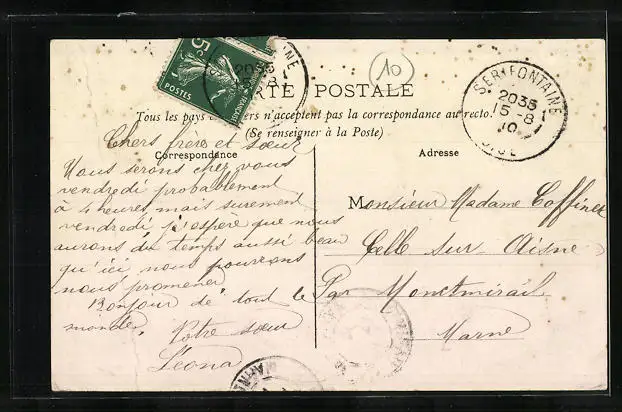 5c
POSTES
CARTE POSTALE
10
SERIFONTAINE
2035
15-8
10
OISE
Tous les pays étrangers n'acceptent pas la correspondance au recto.
(Se renseigner à la Poste)
Correspondance
Adresse
Chers frère et sœur
Nous serons chez vous
vendredi probablement
à 4 heures mais surement
vendredi j'espère que nous
aurons du temps aussi beau
qu'ici nous pourrons
nous promener
Bonjour de tout le
monde, Votre sœur
Léona
Monsieur Madame Coffinet
Celle sur Aisne
Par Montmirail
Marne